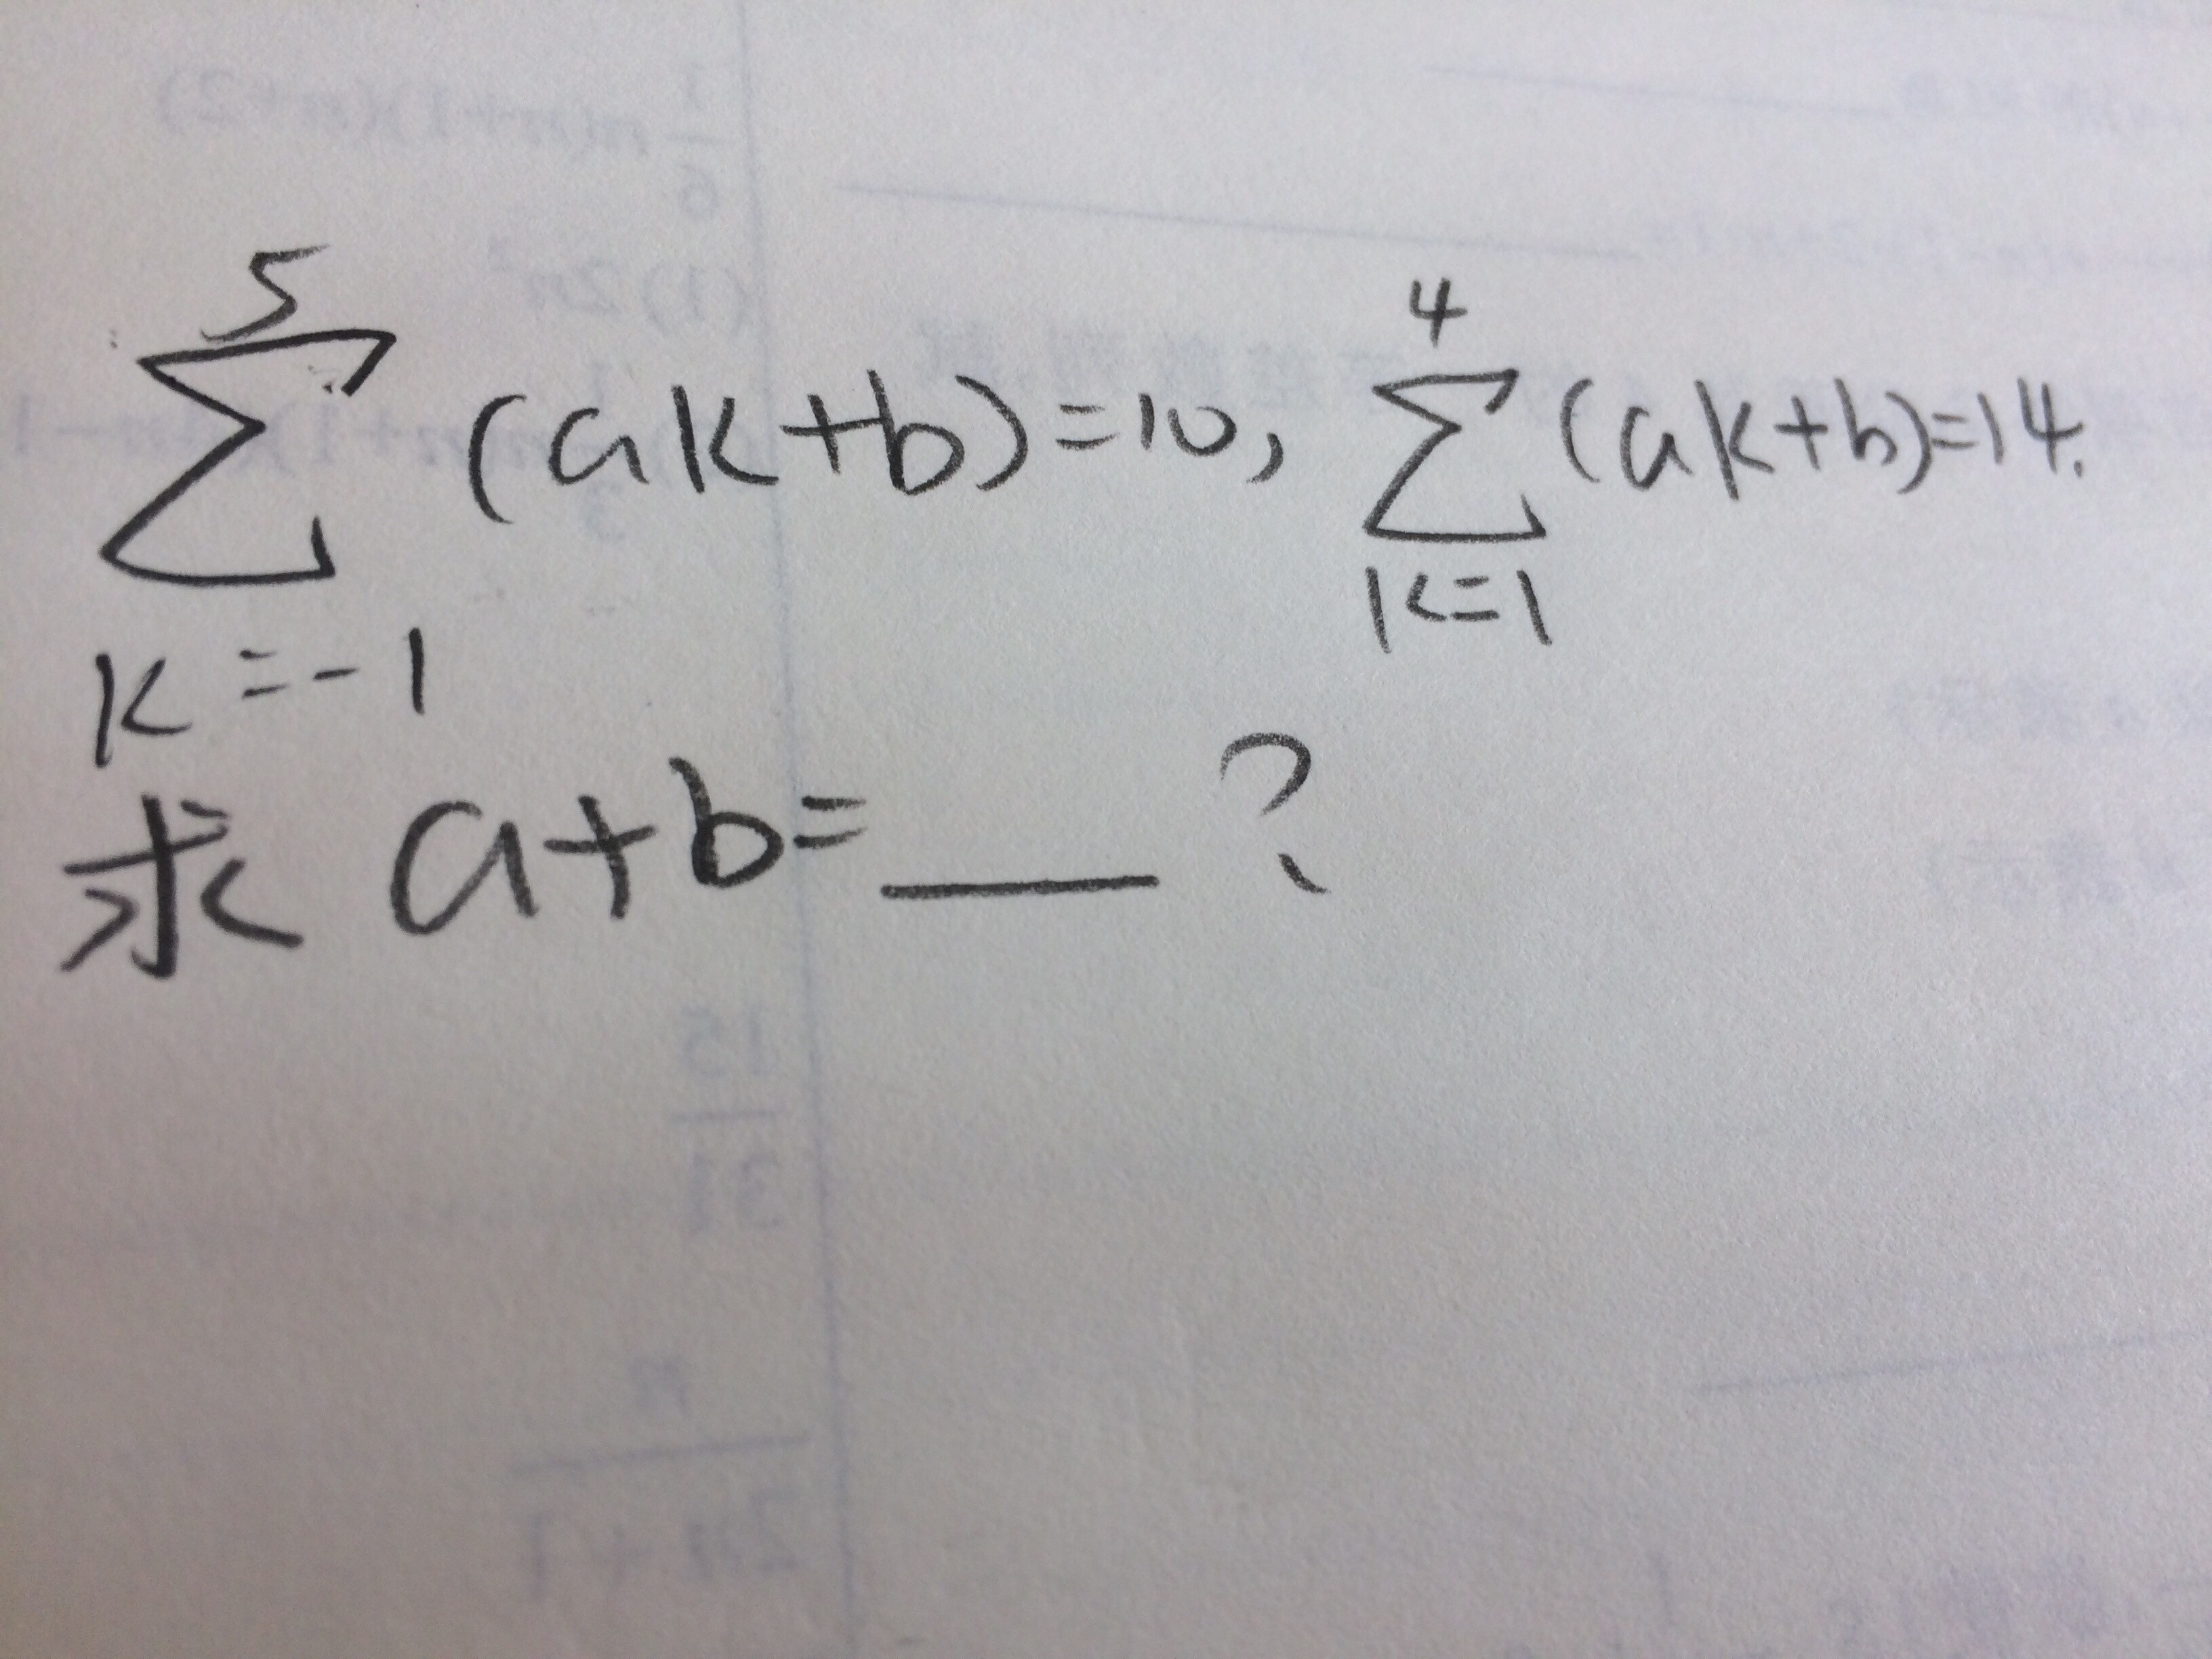 5 4
∑ (ak+b)=10, ∑ (ak+b)=14.
k=-1 k=1
求 a+b=___?